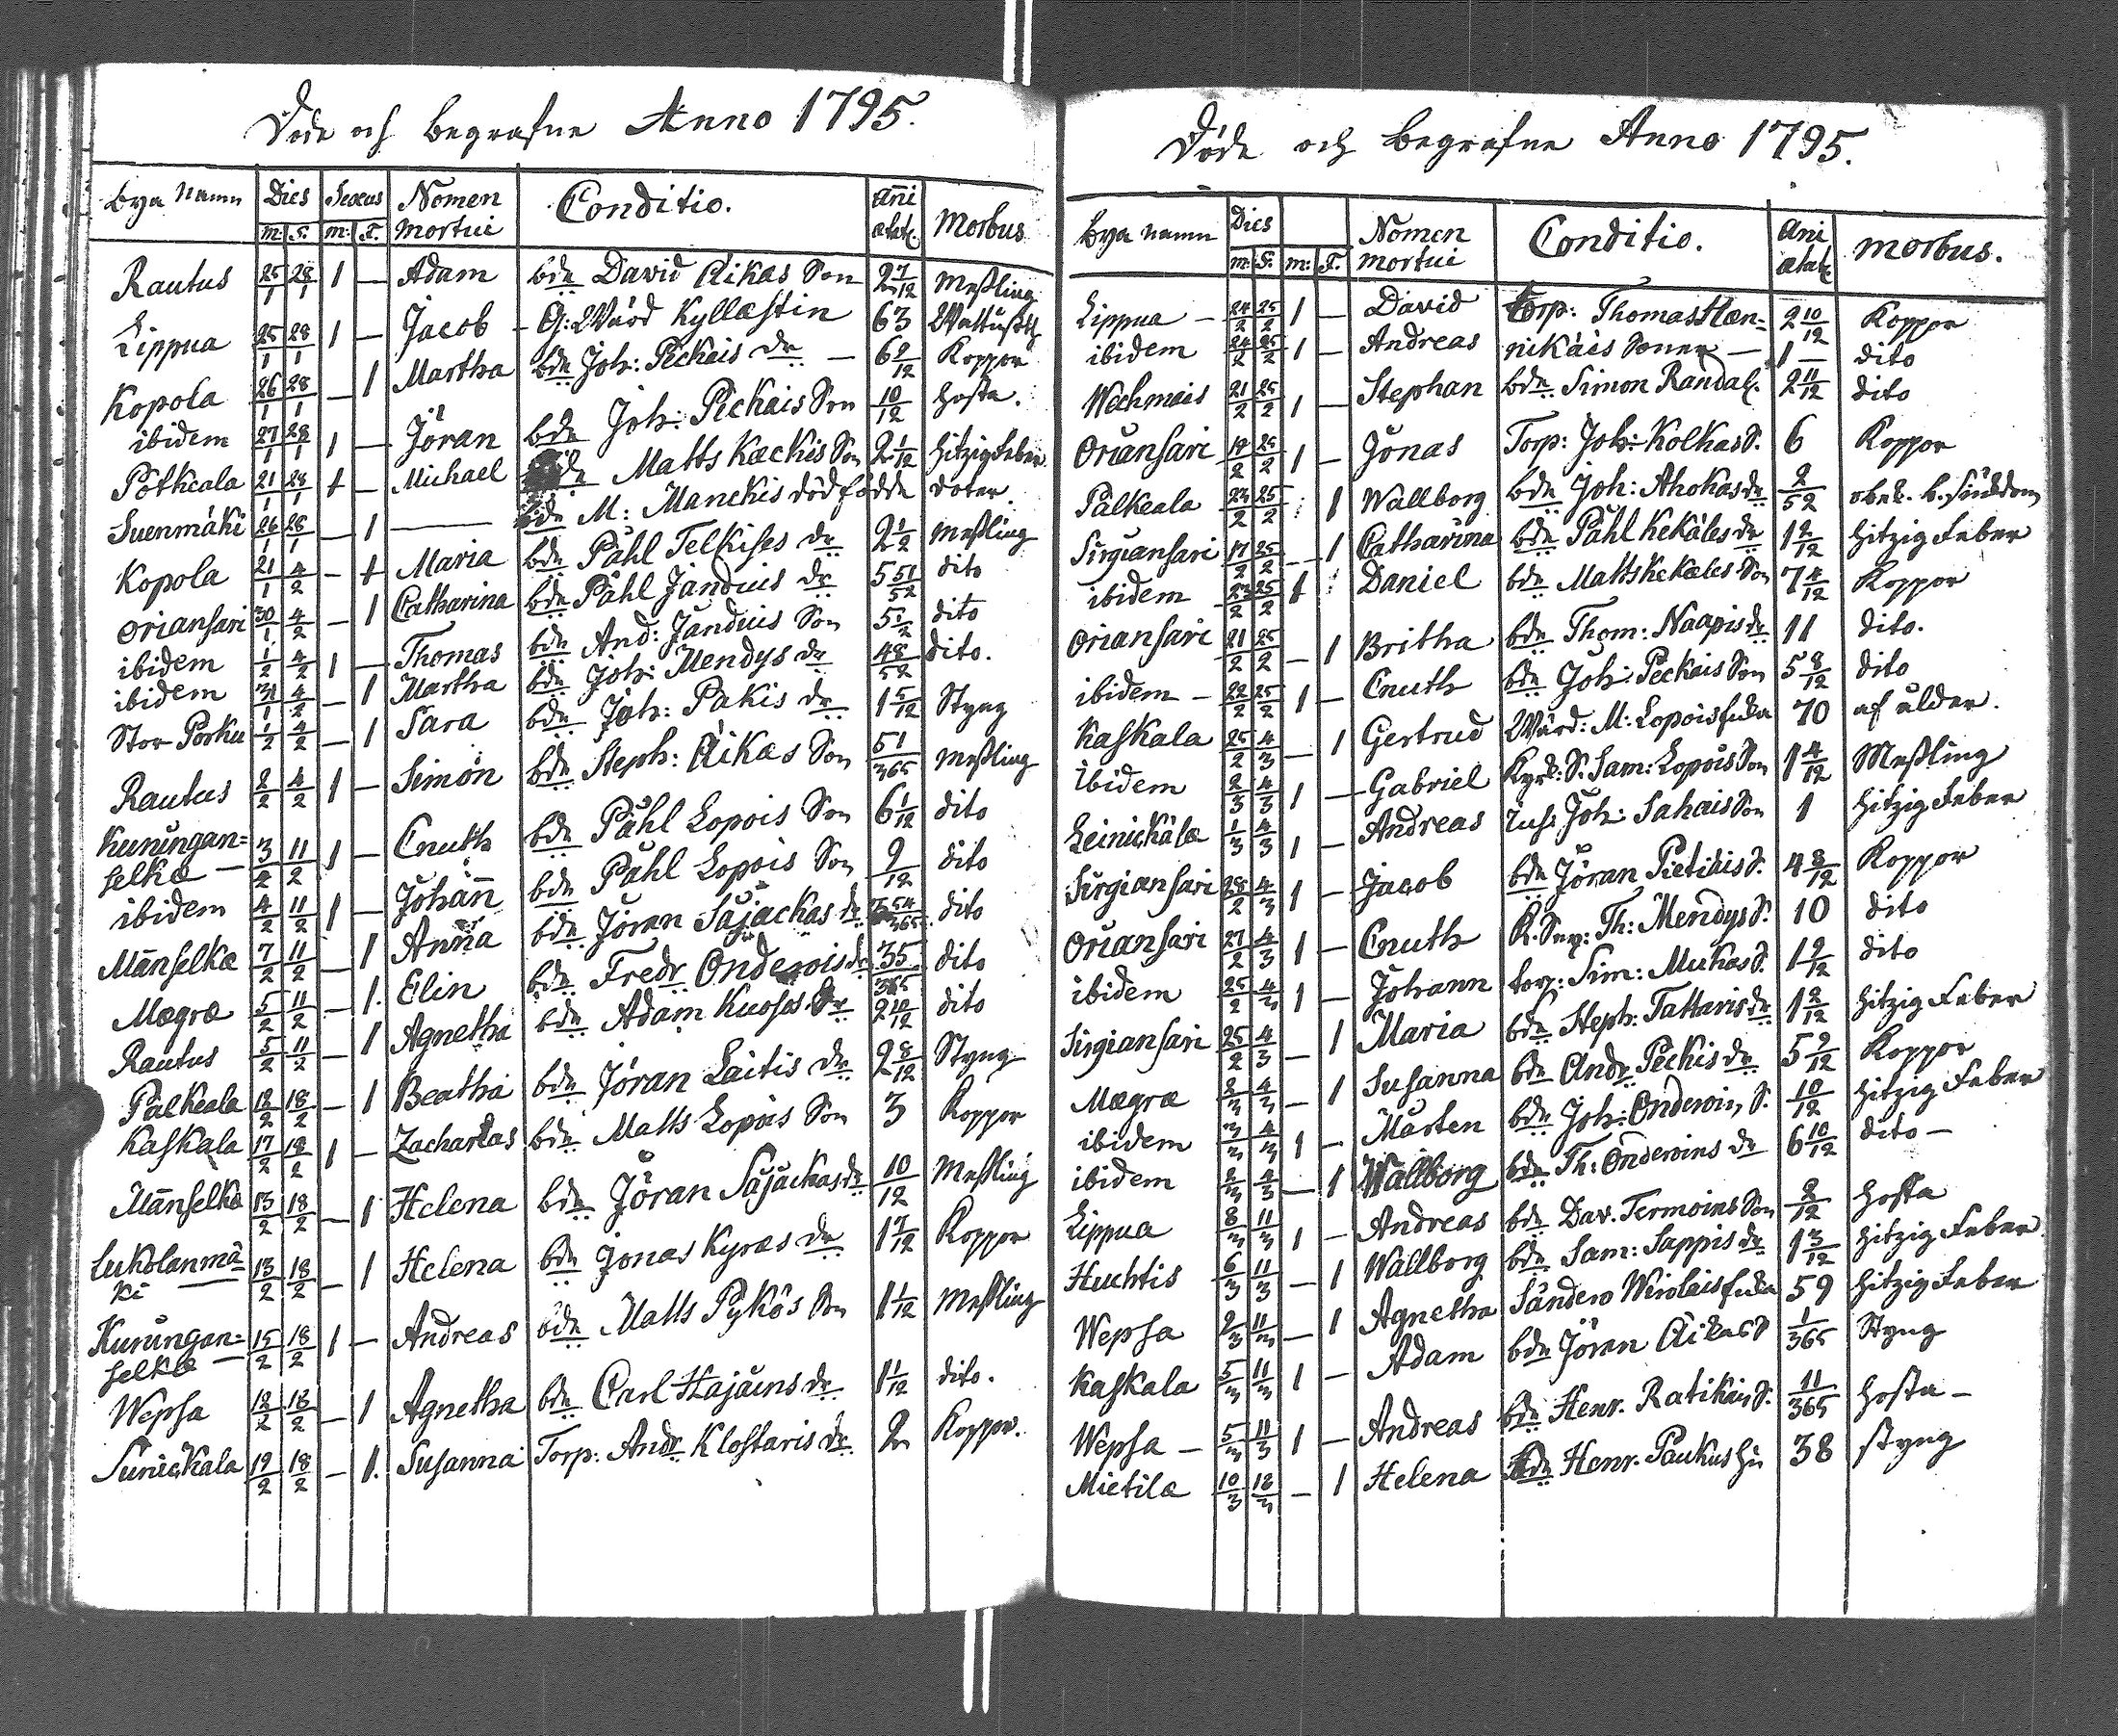 Döde och begrafne Anno 1795.
bya Namn Dies Sexus Nomen Conditio. Ani Morbus
m: S. m: F. mortui ætat:
Rautus 25/1 28/1 1 — Adam bdn David Äikäs Son 2 7/12 Meßling
Lippua 25/1 28/1 1 — Jacob - G: Wärd Kyllästin 63 Wattusot
Kopola 26/1 28/1 — 1 Martha bdn Joh: Peckais dr — 6 9/12 Koppor
ibidem 27/1 28/1 1 — Jöran bdn Joh: Peckais Son 10/12 hosta.
Potkeala 21/1 28/1 1 — Michael Matts Kæckis Son 2 1/12 hitzig Feber
Suenmäki 26/1 28/1 — 1 —— bdn M: Manckis dödfödde doter.
Kopola 21/1 4/2 - 1 Maria bdn Påhl Telkises dr 2 1/2 Meßling
Oriansari 30/1 4/2 — 1 Catharina bdn Påhl Janduis dr 5 51/52 dito
ibidem 1/2 4/2 1 — Thomas bdn And: Janduis Son 5 1/2 dito
ibidem 31/1 4/2 — 1 Martha bdn Joh: Mendys dr 48/52 dito.
Stor Porku 1/2 4/2 — 1 Sara bdn Joh: Pakis dr 1 5/12 Styng
Rautus 2/2 4/2 1 — Simon bdn Steph: Äikäs Son 51/365 Meßling
Kuningan=
selkæ — 3/2 11/2 1 — Cnuth bdn Påhl Lopois Son 6 1/12 dito
ibidem 4/2 11/2 1 — Johan̅ bdn Påhl Lopois Son 9/12 dito
Man̅selkæ 7/2 11/2 — 1 Anna bdn Jöran Säjäckas dr 54/365 dito
Mægræ 5/2 11/2 — 1. Elin bdn Fredr Onderois dr 35/365 dito
Rautus 5/2 11/2 — 1 Agnetha bdn Adam Kuosas dr 2 10/12 dito
Palkeala 12/2 18/2 — 1 Beatha bdn Jöran Laitis dr 2 8/12 Styng
Kaskala 17/2 18/2 1 — Zacharias bdn Matts Lopois Son 3 Koppor
Man̅selkæ 13/2 18/2 — 1 Helena bdn Jöran Säjäckas dr 10/12 Meßling
Lukolanmä=
ki — 13/2 18/2 — 1 Helena bdn Jonas Kyræs dr 1 7/12 Koppor
Kuningan=
selkæ — 15/2 18/2 1 — Andreas bdn Matts Pykös Son 1 1/12 Meßling
Wepsa 12/2 18/2 — 1 Agnetha bdn Carl Hajäins dr 1 1/12 dito.
Sunickala 12/2 18/2 — 1. Susanna Torp: Andr Klostaris dr 2 Koppor.
Döde och begrafne Anno 1795.
bya namn Dies Nomen Conditio. Ani morbus.
m: S. m: F. mortui ætat:
Lippua — 24/2 25/2 1 — David Torp: Thomas Hæn= 2 10/12 Koppor
ibidem 24/2 25/2 1 — Andreas nikäis Söner — 1 — dito
Wechmais 21/2 25/2 1 — Stephan bdn Simon Randal: 2 11/12 dito
Oriansari 14/2 25/2 1 — Jonas Torp: Joh: Kolkas S. 6 Koppor
Palkeala 23/2 25/2 1 Wallborg bdn Joh: Ahokas dr 2/52 obek. b. siukdom
Sirgiansari 17/2 25/2 — 1 Catharina bdn Påhl Kekäles dr 1 2/12 hitzig Feber
ibidem 23/2 25/2 1 Daniel bdn Matts Kekæles Son 7 4/12 Koppor
Oriansari 21/2 25/2 — 1 Britha bdn Thom: Naapis dr 11 dito.
ibidem — 22/2 25/2 1 — Cnuth bdn Joh: Peckais Son 5 8/12 dito
Kaskala 25/2 4/3 — 1 Gertrud Wärd: M: Lopois enka 70 af ålder.
Ibidem 2/3 4/3 1 — Gabriel Kyrk: S. Sam: Lopois Son 1 4/12 Meßling
Leinickälæ 1/3 4/3 1 — Andreas Inhs Joh: Sahais Son 1 hitzig Feber
Sirgiansari 28/2 4/3 1 — Jacob bdn Jöran Pietiäis S. 4 8/12 Koppor
Oriansari 27/2 4/3 1 — Cnuth Th: Mendys S. 10 dito
ibidem 25/2 4/3 1 — Johann torp: Sim: Mukas S. 1 9/12 dito
Sirgiansari 25/2 4/3 — 1 Maria bdn Steph: Tattaris dr 1 2/12 hitzig Feber
Mægræ 2/3 4/3 — 1 Susanna bdn Andr Peckis dr 5 9/12 Koppor
ibidem 3/3 4/3 1 - Mårten bdn Joh: Onderoin, S. 10/12 hitzig Feber
ibidem 2/3 4/3 — 1 Wallborg bdn Th: Onderoins dr 6 10/12 dito —
Lippua 8/3 11/3 1 — Andreas bdn Dav. Termoins Son 2/12 hosta
Huchtis 6/3 11/3 — 1 Wallborg bdn Sam: Sappis dr 1 3/12 hitzig Feber.
Wepsa 2/3 11/3 — 1 Agnetha Sandero Wirolais enka 59 hitzig Feber
Kaskala 5/3 11/3 1 — Adam bdn Jöran Äikas S 1/365 Styng
Wepsa — 5/3 11/3 1 — Andreas bdn Henr. Ratikäis S. 11/365 hosta —
Mietilæ 10/3 18/3 — 1 Helena bdn Henr. Paukus hu 38 styng